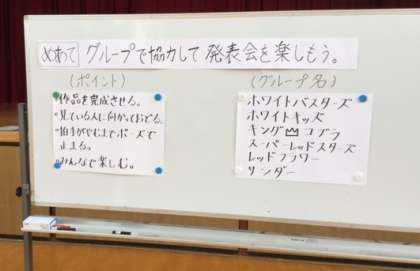 めあて グループで協力して発表会を楽しもう。
(ポイント)
・作品を完成させる。
・見ている人に向かっておどる。
・拍手がやむまでポーズで
止まる。
・みんなで楽しむ。
(グループ名)
ホワイトバスターズ
ホワイトキッズ
キングコブラ
スーパーレッドスターズ
レッドフラワー
サンダー